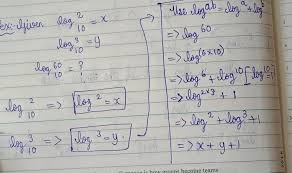 ex: Given log₁₀² = x
log₁₀³ = y
log₁₀⁶⁰ = ?
log₁₀² => log² = x
log₁₀³ => log³ = y
Use log^ab = log^a + log^b
=> log⁶⁰
=> log^(6x10)
=> log⁶ + log¹⁰ [log₁₀¹⁰ = 1]
=> log^2x3 + 1
=> log² + log³ + 1
=> x + y + 1